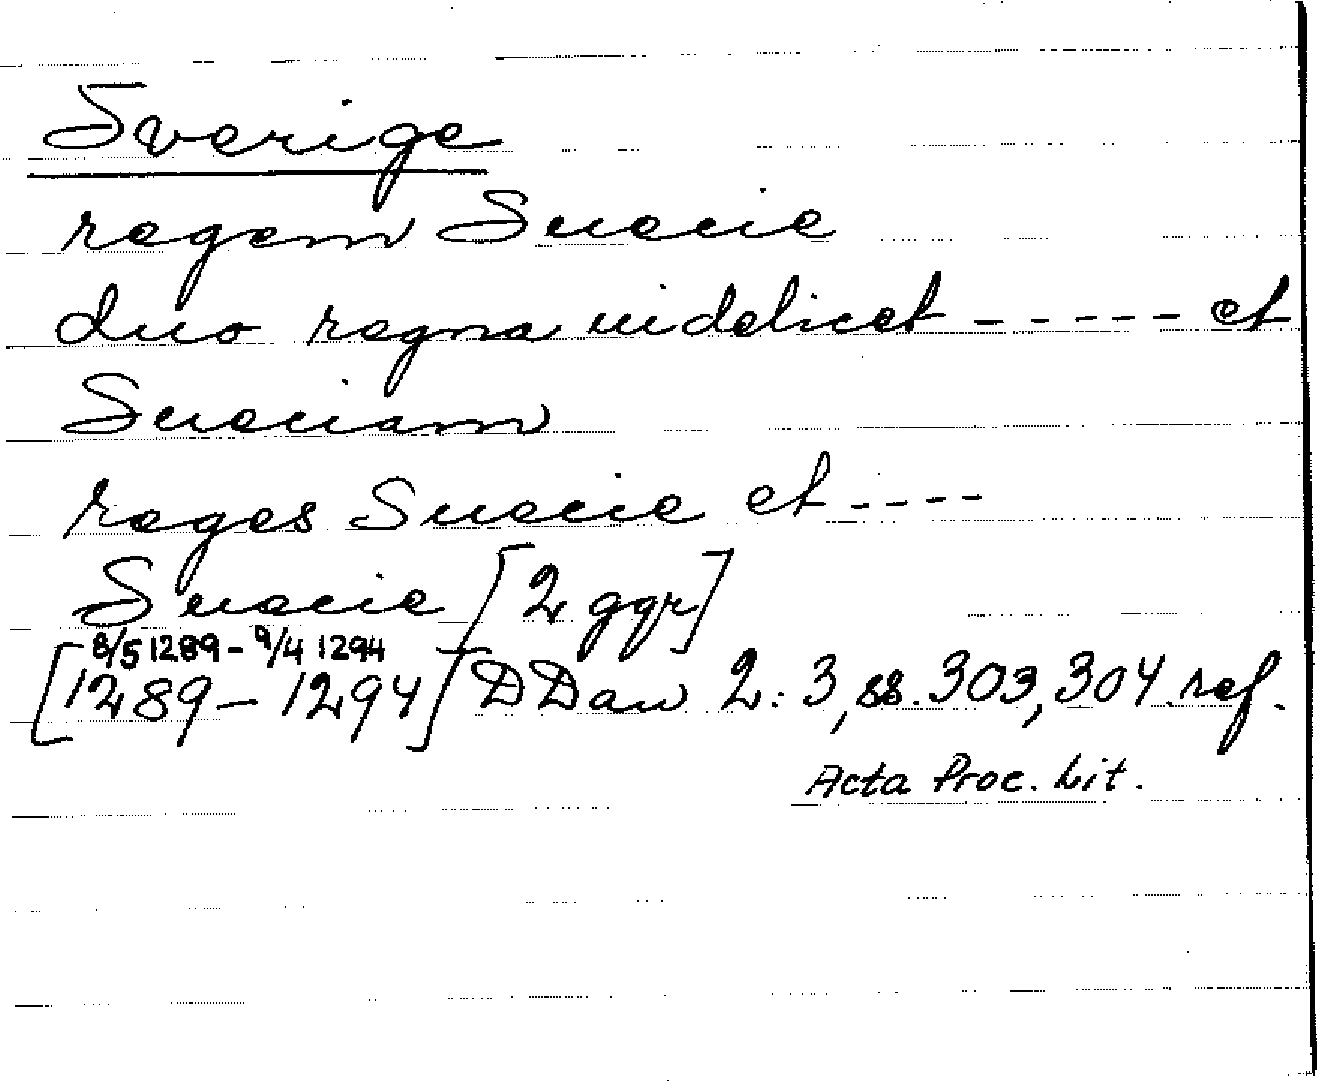 Sverige
regem Suecie
duo regna uidelicet ----- et
Sueciam
reges Suecie et ----
Suecie [2 ggr]
8/5 1289 - 9/4 1294
[1289 - 1294] DDan 2: 3, ss. 303, 304. ref.
Acta Proc. Lit.